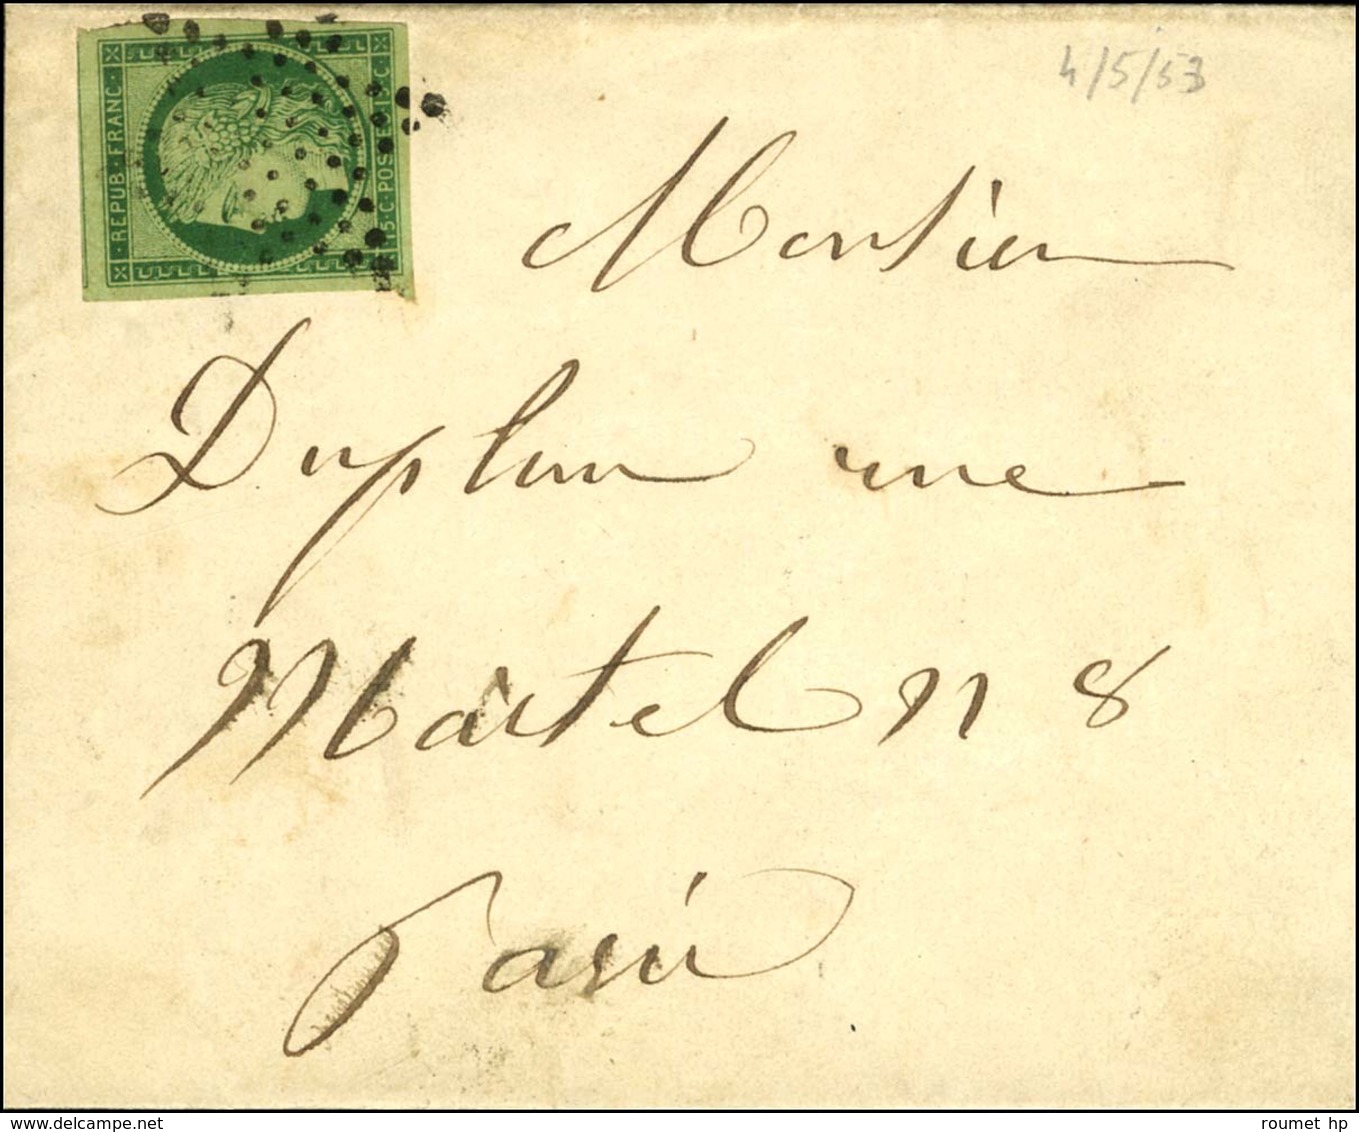 REPUB·FRANC·
15·C·POSTE·15·C·
4/5/53
Monsieur
rue
Martel n 8
Paris
- roumet hp
delcampe.net